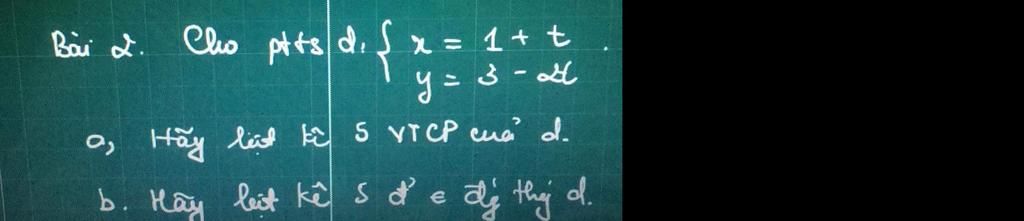 Bài 2. Cho ptts d: { x = 1 + t .
y = 3 - 2t
a, Hãy liệt kê 5 VTCP của d.
b. Hãy liệt kê 5 đ' ∈ đg thg d.